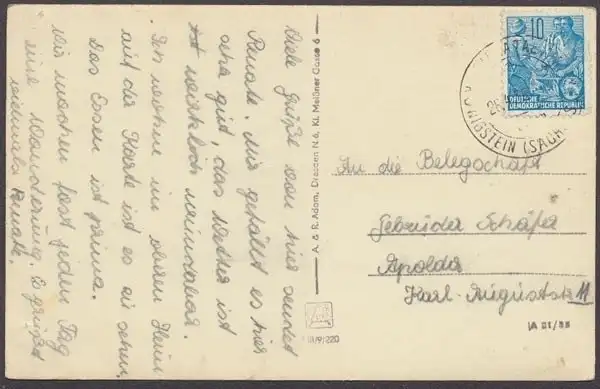 Viele Grüße von hier sendet
Renate. Mir gefällt es hier
sehr gut, das Wetter ist
wirklich wunderbar.
Ich wohne im oberen Heim
auf die Karte ist es zu sehen.
Das Essen ist prima.
Wir machen fast jeden Tag
eine Wanderung. Es grüßt
vielmals Renate.
A. & R. Adam, Dresden N 6, Kl. Meißner Gasse 6
10
DEUTSCHE
DEMOKRATISCHE REPUBLIK
KÖNIGSTEIN (SÄCHS
An die Belegschaft
Gebrüder Schäfer
Apolda
Karl-Auguststr 11
IA 21/55